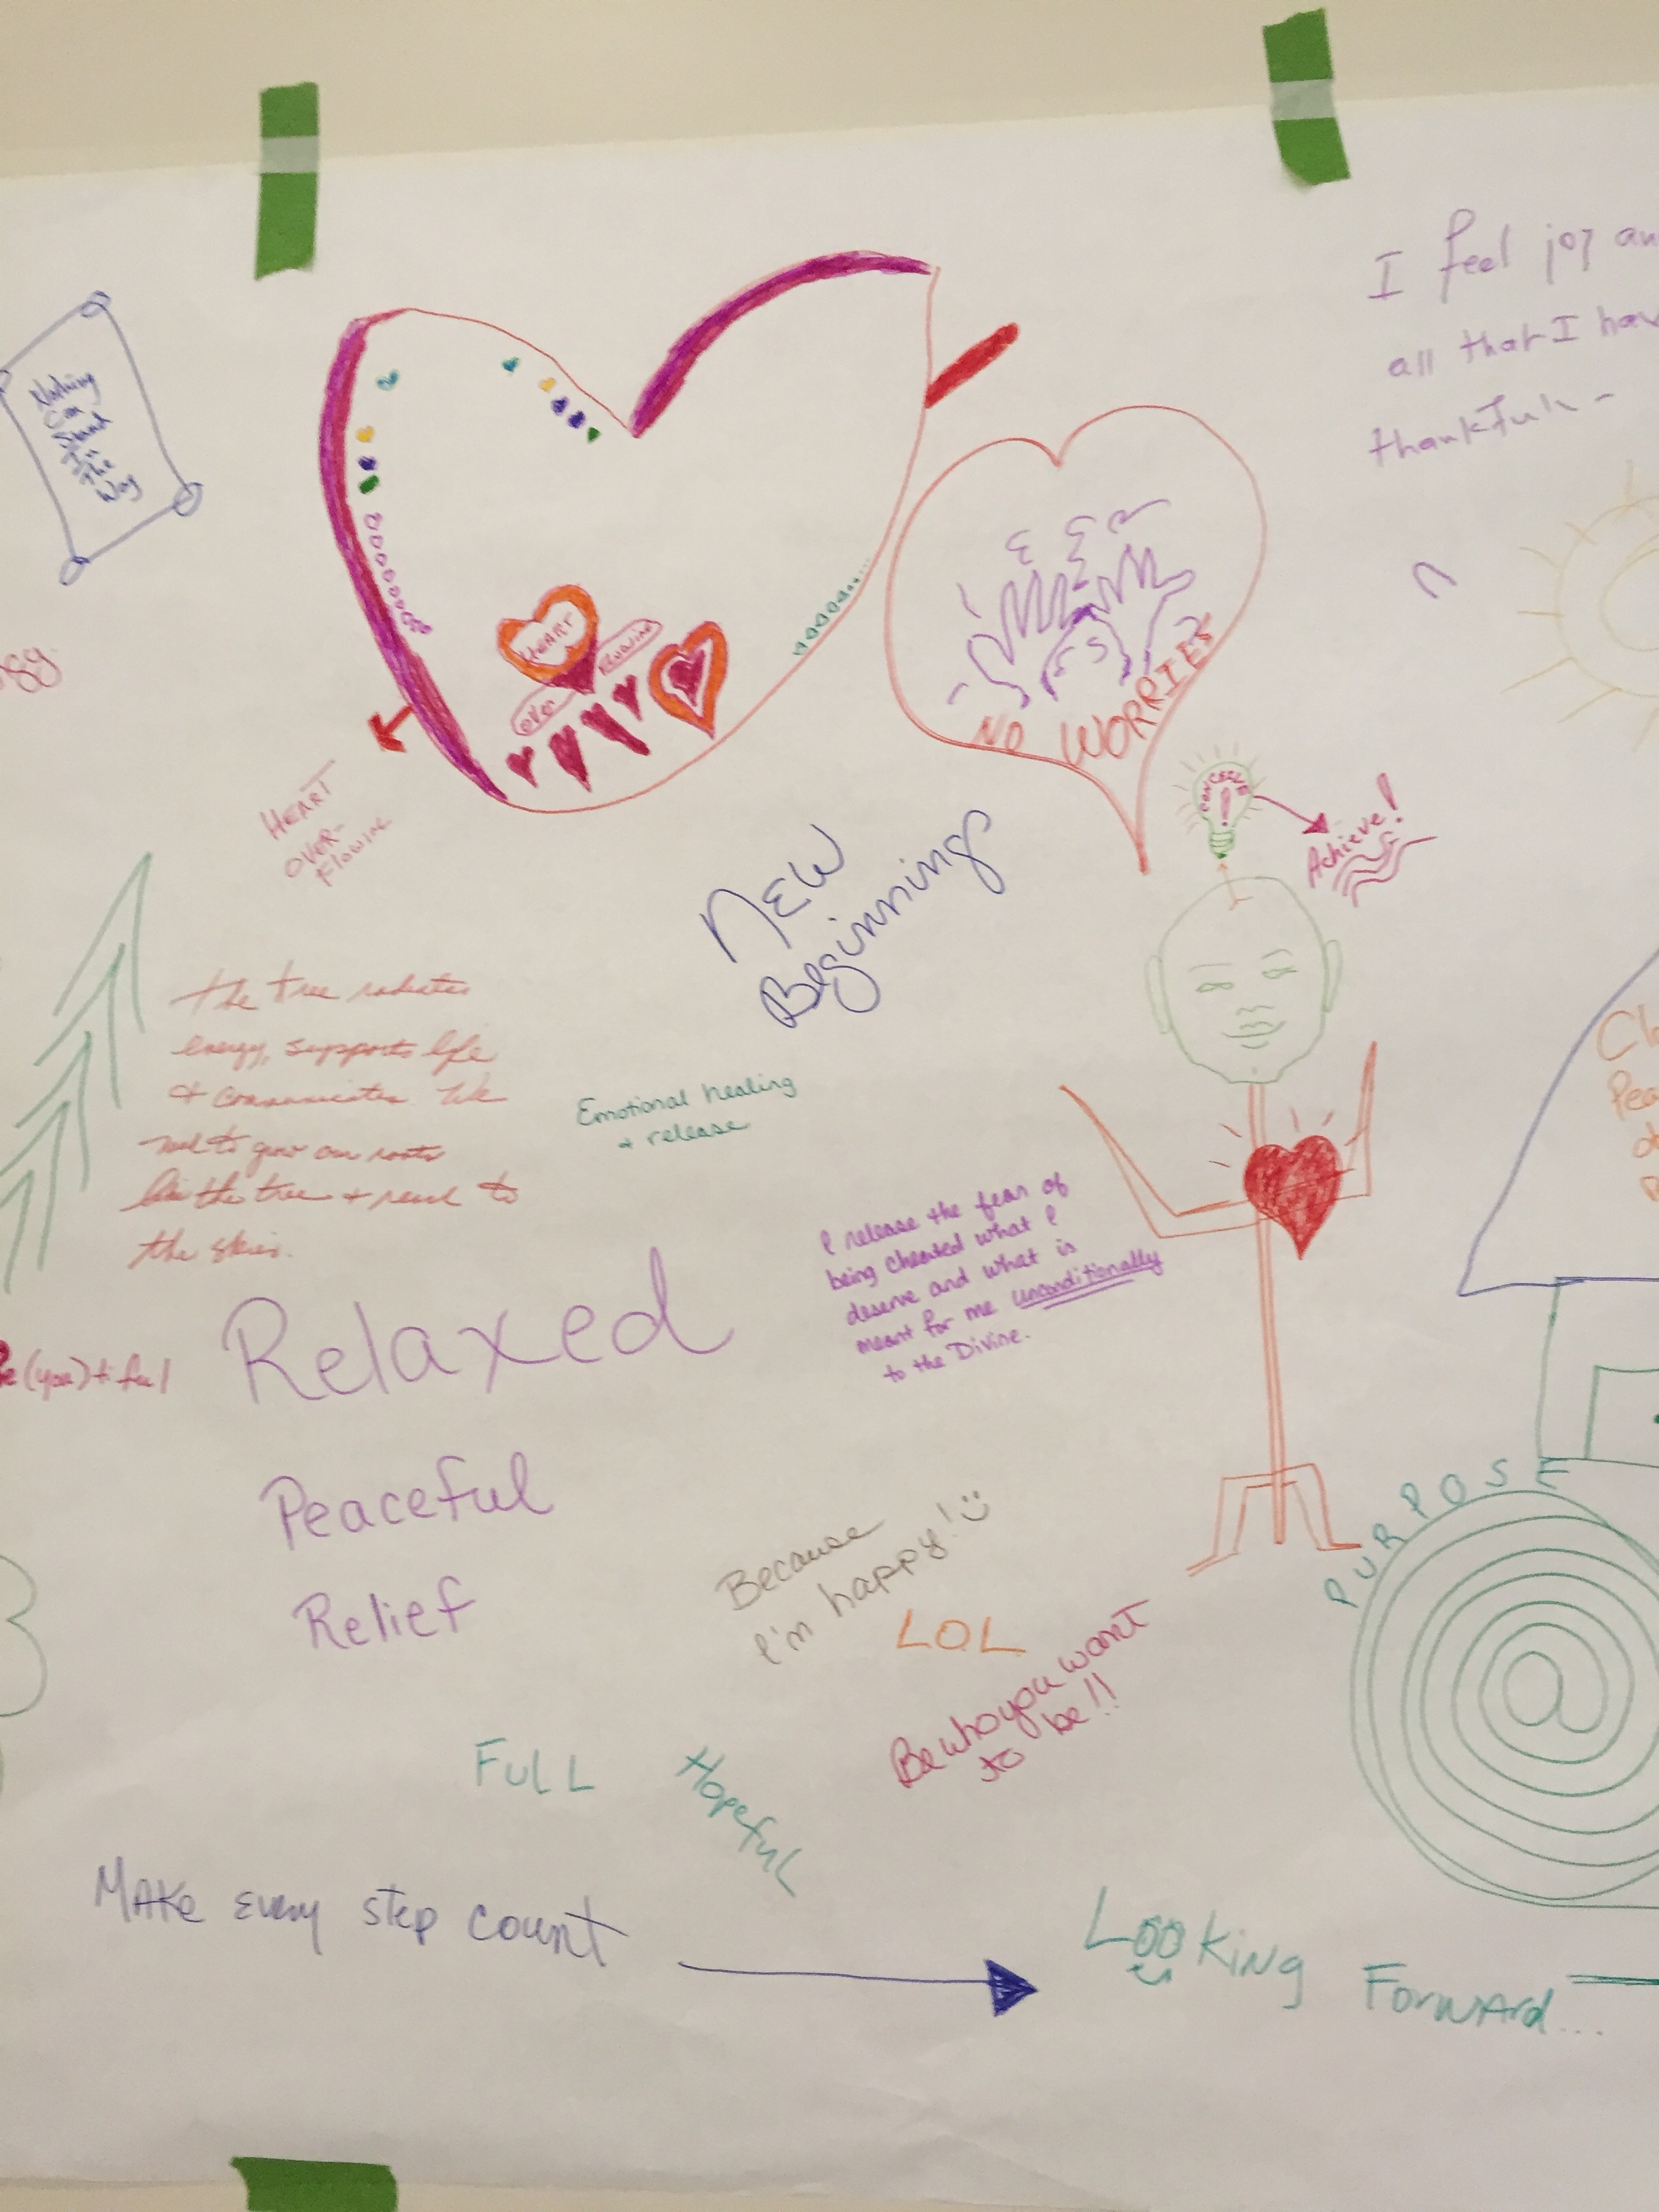 I feel joy an
all that I hav
thankful~
Nothing
Can
Stand
In
The
Way
HEART
OVER
FLOWING
NO WORRIES
CONCEIVE
!
Achieve!
HEART
OVER-
FLOWING
NEW
Beginnings
the tree radiates
energy, supports life
+ communicates. We
need to grow our roots
like the tree + reach to
the skies.
Emotional healing
+ release
I release the fear of
being cheated what I
deserve and what is
meant for me unconditionally
to the Divine.
Be(you)tiful
Relaxed
Peaceful
Relief
Because
I'm happy! :)
LOL
Be who you want
to be!!
PURPOSE
FULL
Hopeful
MAKe every step count
Looking
Forward...